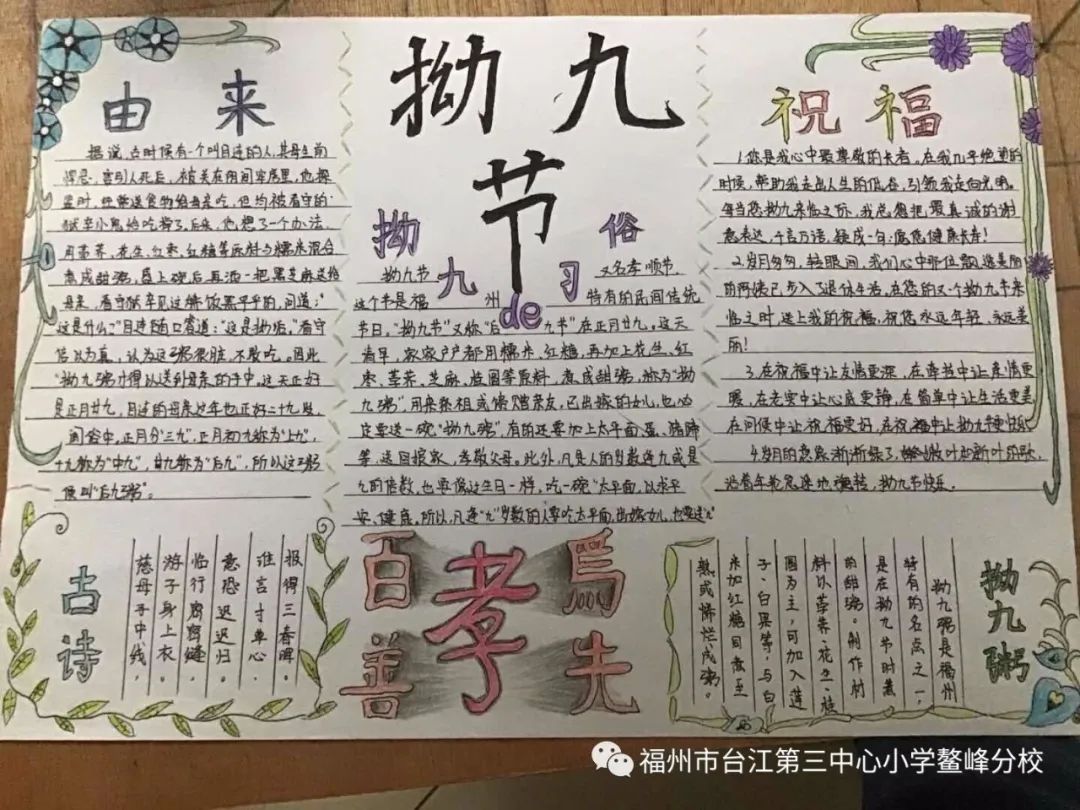 拗九
节
由来
据说，古时候有一个叫目连的人，其母生前
，害别人死后，被关在阴间牢房里，他探
监时，经常送食物给母亲吃，但均被看守的
狱卒小鬼给吃掉了，后来，他想了一个办法，
用荸荠、花生、红枣、红糖等原料与糯米混合
煮成甜粥，盛上碗后再洒一把黑芝麻送给
母亲，看守狱卒见这锅饭黑乎乎的，问道：“
这是什么？”目连随口答道：“这是拗垢。”看守
信以为真，认为这粥很脏，不敢吃。因此
“拗九粥”才得以送到母亲的手中。这天正好
是正月廿九，目连的母亲这年也正好二十九岁，
闽俗中，正月分“三九”，正月初九称为“上九”，
十九称为“中九”，廿九称为“后九”，所以这粥
便叫“后九粥”。
拗九de习俗
拗九节 又名孝顺节，
这个节是福州特有的民间传统
节日。“拗九节”又称“后九节”在正月廿九。这天
清早，家家户户都用糯米、红糖，再加上花生、红
枣、荸荠、芝麻、桂圆等原料，煮成甜粥，称为“拗
九粥”，用来祭祖或馈赠亲友，已出嫁的女儿，也必
定要送一碗“拗九粥”，有的还要加上太平面蛋、猪蹄
等，送回娘家，孝敬父母。此外，凡是人的岁数逢九或是
九的倍数，也要像过生日一样，吃一碗“太平面，以求平
安、健康。所以，凡逢“九”岁数的人要吃太平面，出嫁女儿，也要送“九”
祝福
1.您是我心中最尊敬的长者。在我几乎绝望的
时候，帮助我走出人生的低谷，引领我走向光明。
每当您拗九来临之际，我总想把最真诚的谢
意表达，千言万语，凝成一句：愿您健康长寿！
2.岁月匆匆，转眼间，我们心中那位飘逸美丽
的阿姨已步入了退休生活，在您的又一个拗九节来
临之时，送上我的祝福，祝您永远年轻、永远美
丽！
3.在祝福中让友情更深，在牵挂中让亲情更
暖，在老实中让心底更静，在简单中让生活更美
在问候中让祝福更好，在祝福中让拗九节更快乐
4.岁月的意象渐渐绿了，
沿着年轮急速地旋转，拗九节快乐。
古诗
慈母手中线，
游子身上衣。
临行密密缝，
意恐迟迟归。
谁言寸草心，
报得三春晖。
百善孝为先
拗九粥
拗九粥是福州
特有的名点之一，
是在拗九节时煮
的甜粥。制作材
料以荸荠、花生、桂
圆为主，可加入莲
子、白果等，与白
米加红糖同煮至
熟或烯烂成粥。
福州市台江第三中心小学鳌峰分校